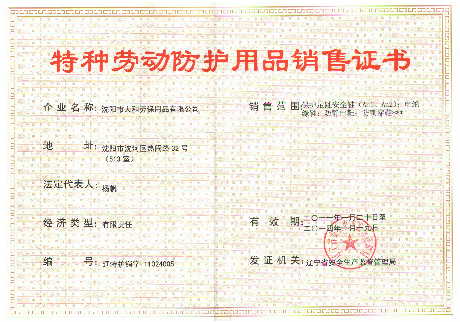 特种劳动防护用品销售证书
企业名称：沈阳市天科劳保用品有限公司
地 址：沈阳市沈河区热闹路32号
（513室）
法定代表人：杨帆
经济类型：有限责任
编 号：辽特护销字11024005
销售范围：
有 效 期：二〇一一年一月二十日至
二〇一四年一月十九日
发证机关：辽宁省安全生产监督管理局